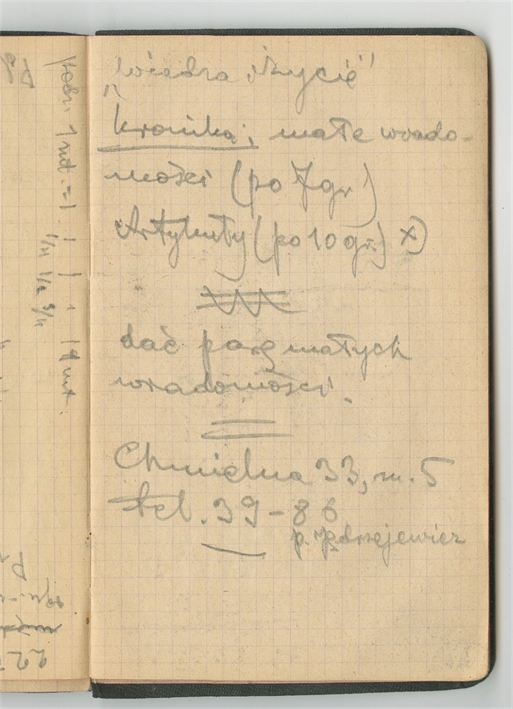 „Wiedza i życie"
kronika; małe wiado-
mości (po 7 gr)
Artykuły (po 10 gr.) x)
dać parę małych
wiadomości.
Chmielna 33, m. 5
tel. 39-86
p. Jędrzejewicz